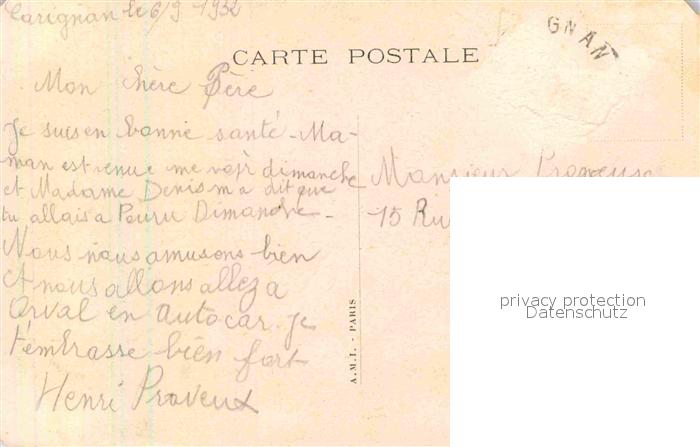 Carignan le 6/9 1932
GNAN
CARTE POSTALE
Mon chère Père
Je suis en bonne santé - Ma-
man est venue me voir dimanche
et Madame Denis m a dit que
tu allais a Pouru Dimanche -
Nous nous amusons bien
et nous allons allez a
Orval en autocar. Je
t'embrasse bien fort
Henri Praveux
Monsieur
15 Rue
A.M.I. - PARIS
privacy protection
Datenschutz